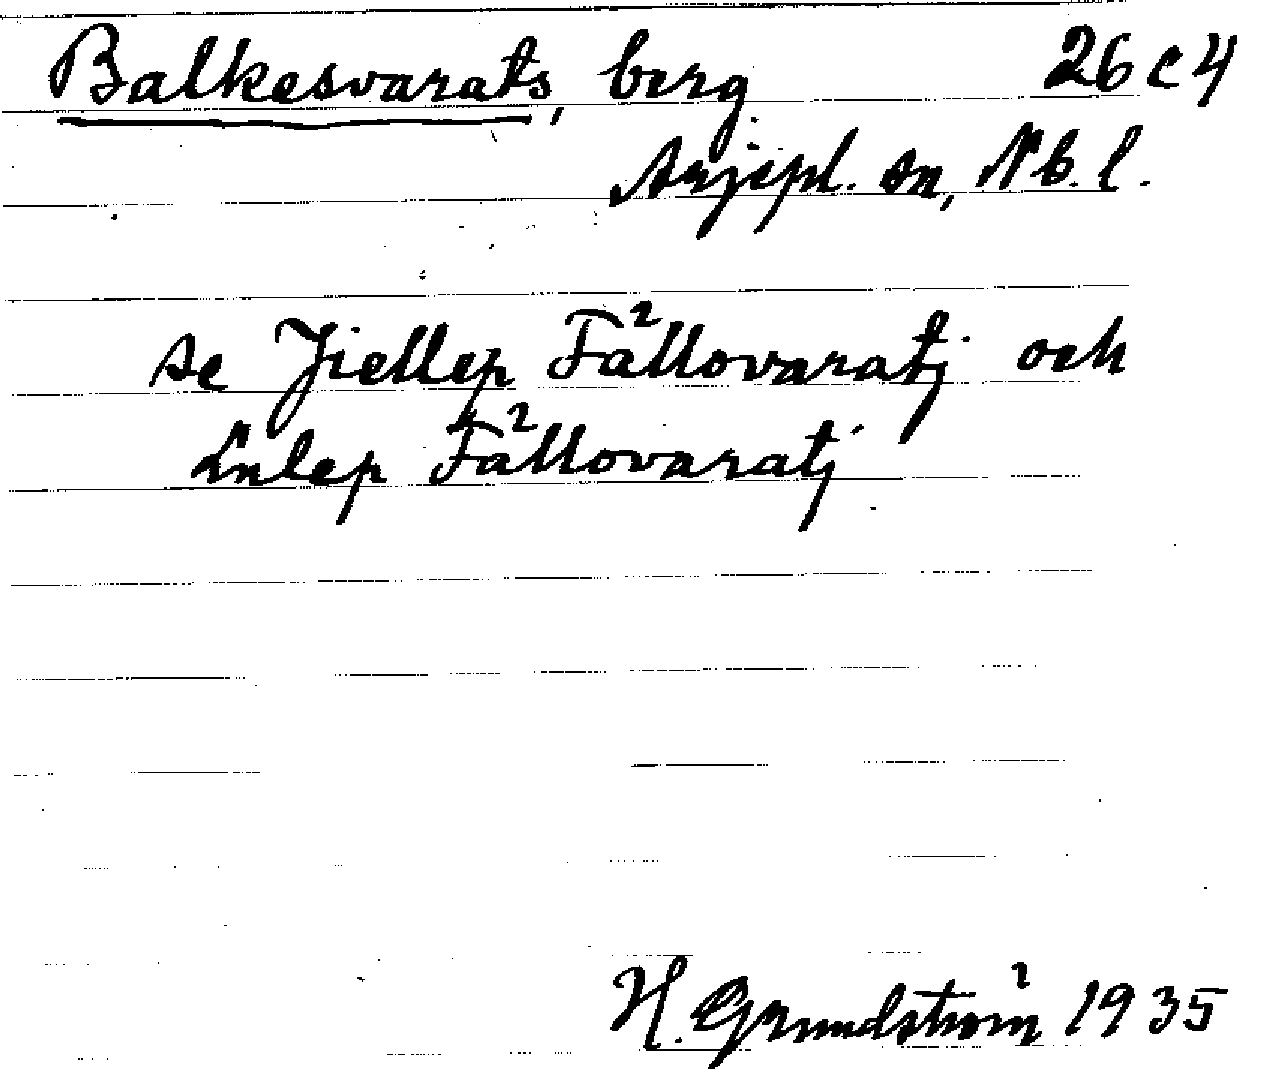 Balkesvarats, berg 26 c 4
Arjepl. sn, Nb. l.
se Jiellep Fällovaratj och
Lulep Fällovaratj
H. Grundström 1935